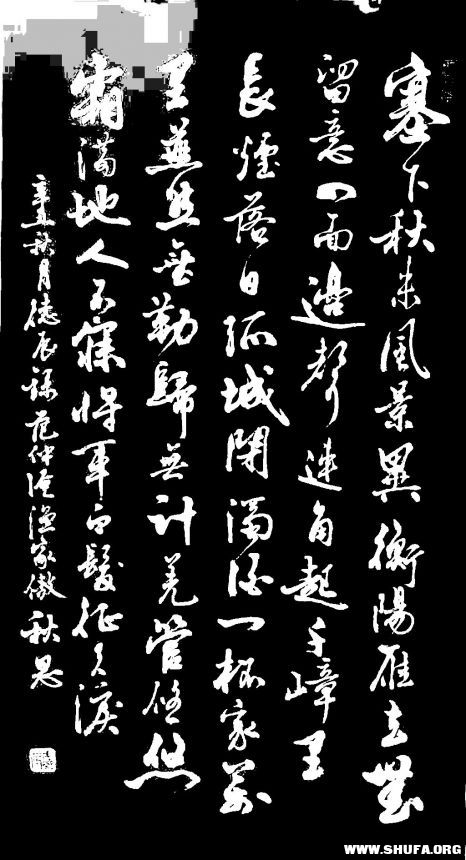 塞下秋来風景異衡陽雁去無
留意四面邊聲連角起千嶂里
長煙落日孤城閉濁酒一杯家萬
里燕然無勒歸無計羌管悠悠
霜滿地人不寐將軍白髮征夫淚
辛丑秋月辰錄范仲淹漁家傲秋思
WWW.SHUFA.ORG